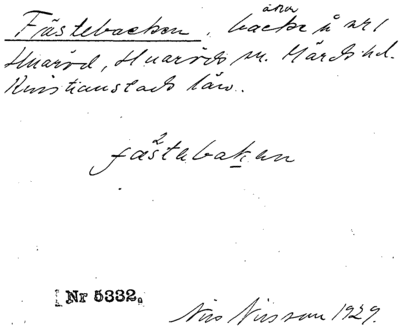 åna
Fästebacken, backe å nr 1
Huaröd, Huaröds sn. Gärds hd.
Kristianstads län.
2
fästebakɛn
Nr 5332.
Nils Nilsson 1929.